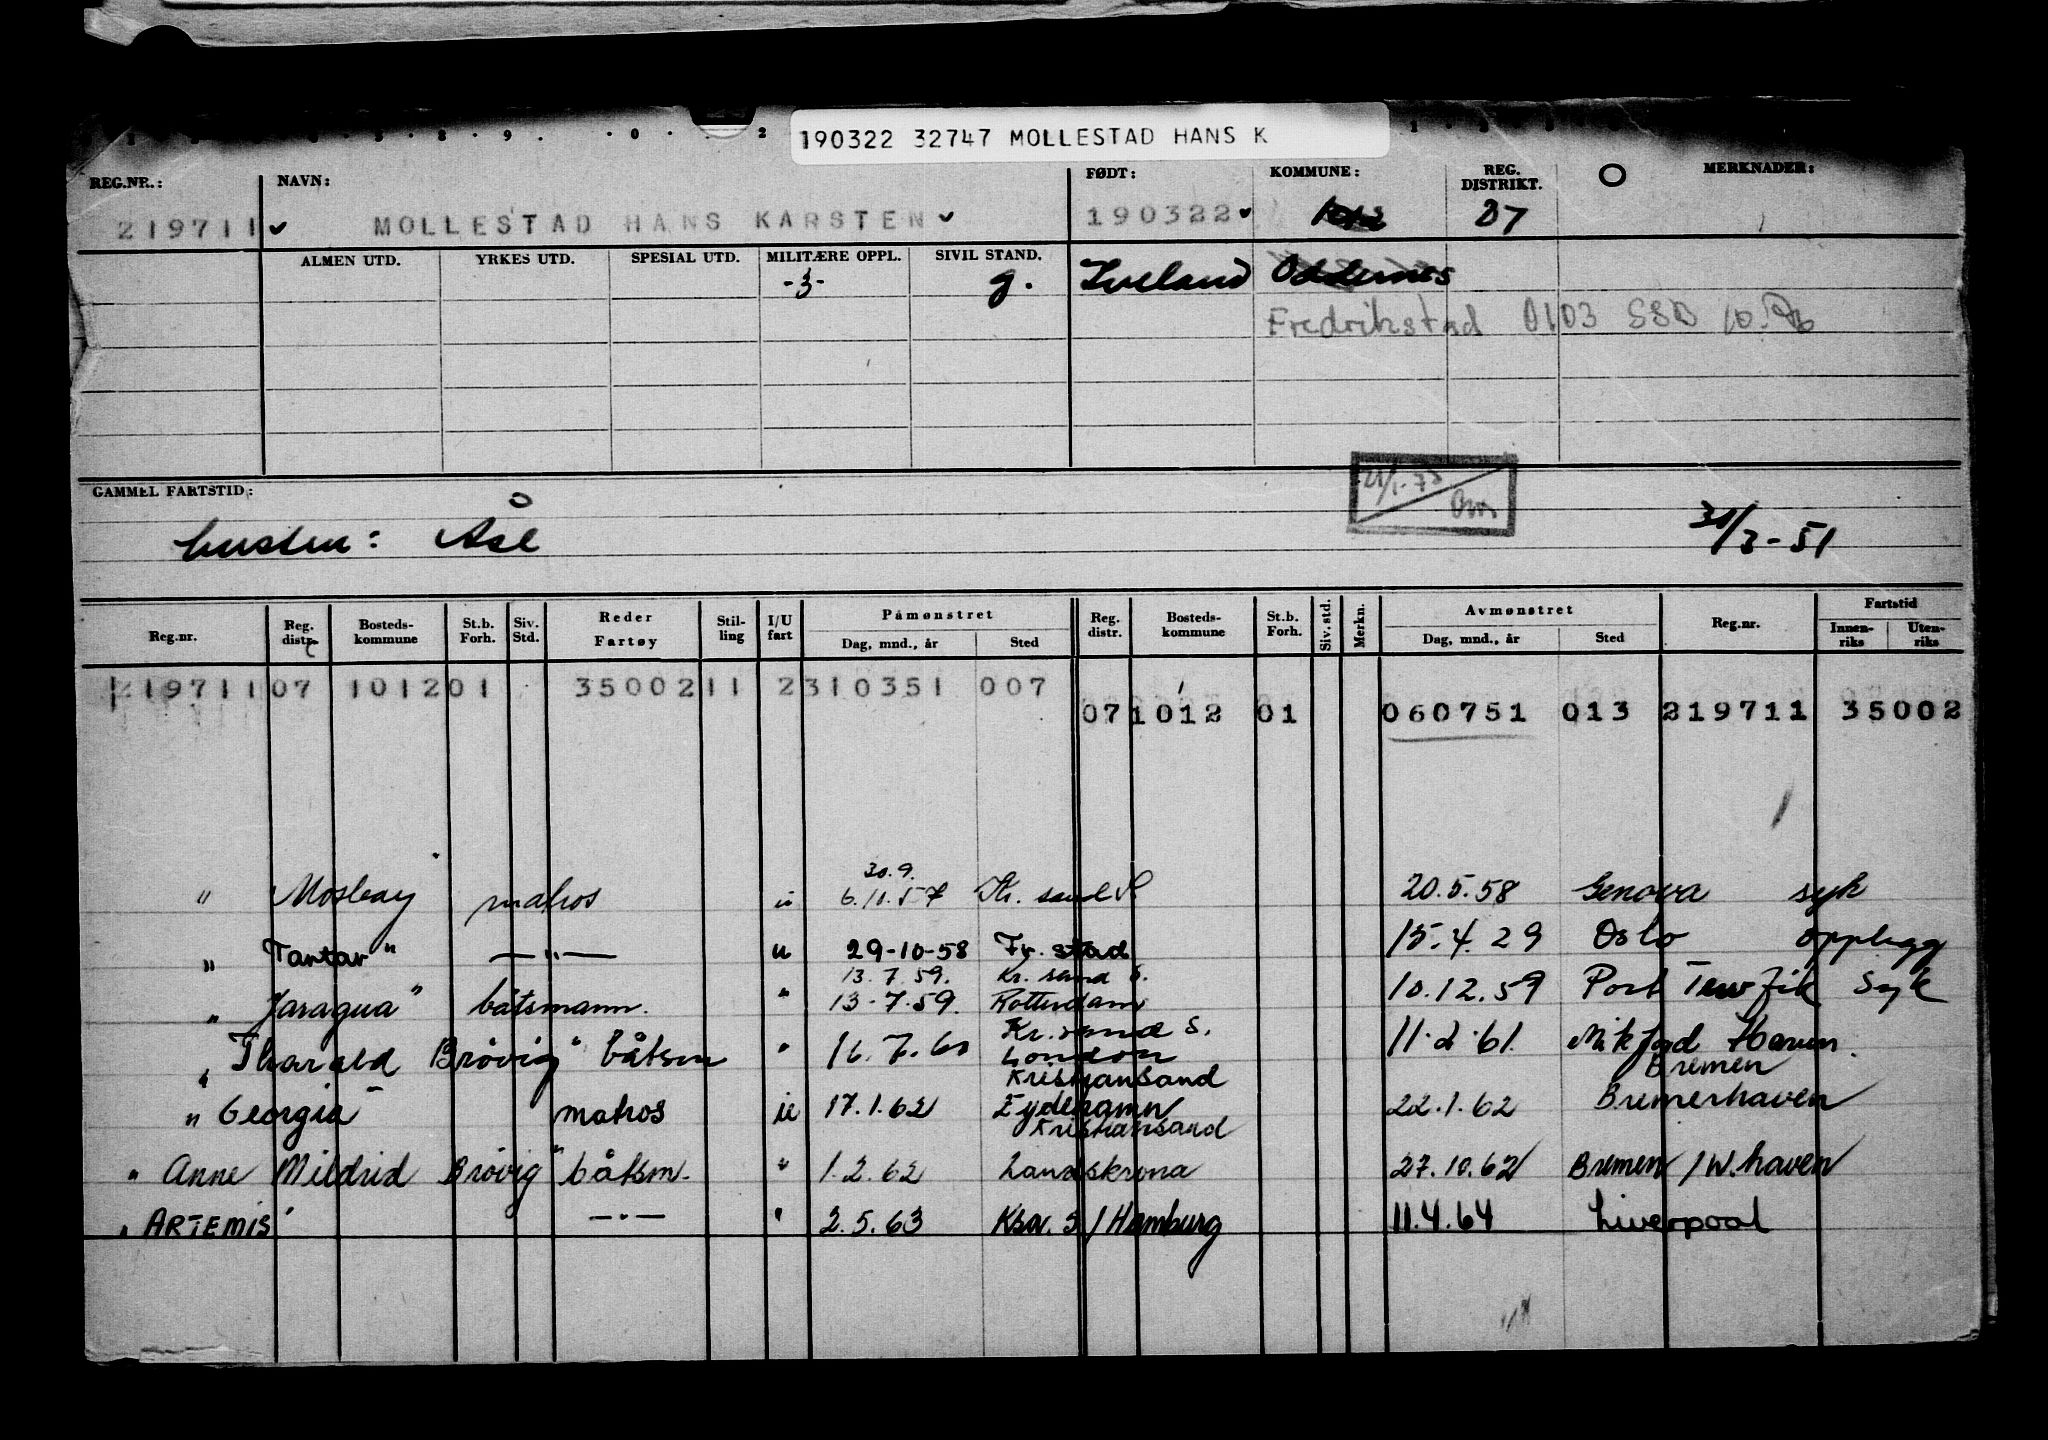 190322 32747 MOLLESTAD HANS K
REG.NR.: NAVN: FØDT: KOMMUNE: REG. DISTRIKT. MERKNADER:
219711 MOLLESTAD HANS KARSTEN 190322 07
ALMEN UTD. YRKES UTD. SPESIAL UTD. MILITÆRE OPPL. SIVIL STAND.
-3- g. Iveland Oddernes
Fredrikstad 0103 SSB
GAMMEL FARTSTID:
21/1-73
hustru: Åse 31/3-51
Reg.nr. Reg. distr. Bosteds-kommune St.b. Forh. Siv. Std. Reder Fartøy Stil-ling I/U fart Påmønstret Dag, mnd., år Sted Reg. distr. Bosteds-kommune St.b. Forh. Siv. std. Merkn. Avmønstret Dag, mnd., år Sted Reg.nr. Fartstid Innen-riks Uten-riks
219711 07 1012 01 35002 11 2 310351 007
07 1012 01 060751 013 219711 35002
30.9.
" Mosbay matros u 6.11.57 Kr. sand S 20.5.58 Genova syk
" Tantar" —"— u 29-10-58 Fr. stad 15.4.29 Oslo opplegg
13.7.59. Kr. sand S.
" Jaragua" båtsmann. " 13-7.59. Rotterdam 10.12.59 Port Tewfik Syk
Kr. sand S.
" Tharald Brøvig" båtsm " 16.7.60 London 11.2.61.
Kristiansand Bremen
" Georgia" matros u 17.1.62 Eydehamn 22.1.62 Bremerhaven
Kristiansand
" Anne Mildrid Brøvig" båtsm. " 1.2.62 Landskrona 27.10.62 Bremen / W.haven
" ARTEMIS" —"— " 2.5.63 Ksa. S / Hamburg 11.4.64 Liverpool